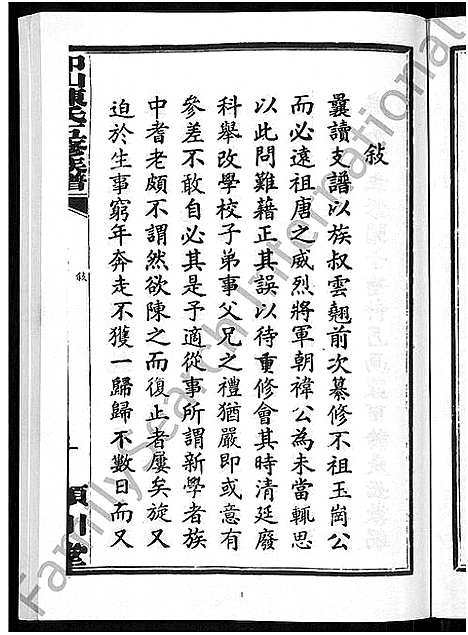 敍
曩讀支譜以族叔雲翹前次纂修不祖玉崗公
而必遠祖唐之威烈將軍朝褘公為未當輒思
以此問難藉正其誤以待重修會其時清廷廢
科舉改學校子弟事父兄之禮猶嚴即或意有
參差不敢自必其是予適從事所謂新學者族
中耆老頗不謂然欲陳之而復止者屢矣旋又
迫於生事窮年奔走不獲一歸歸不數日而又
陳氏五修族譜
敍
一
潁川堂
1
FamilySearch International